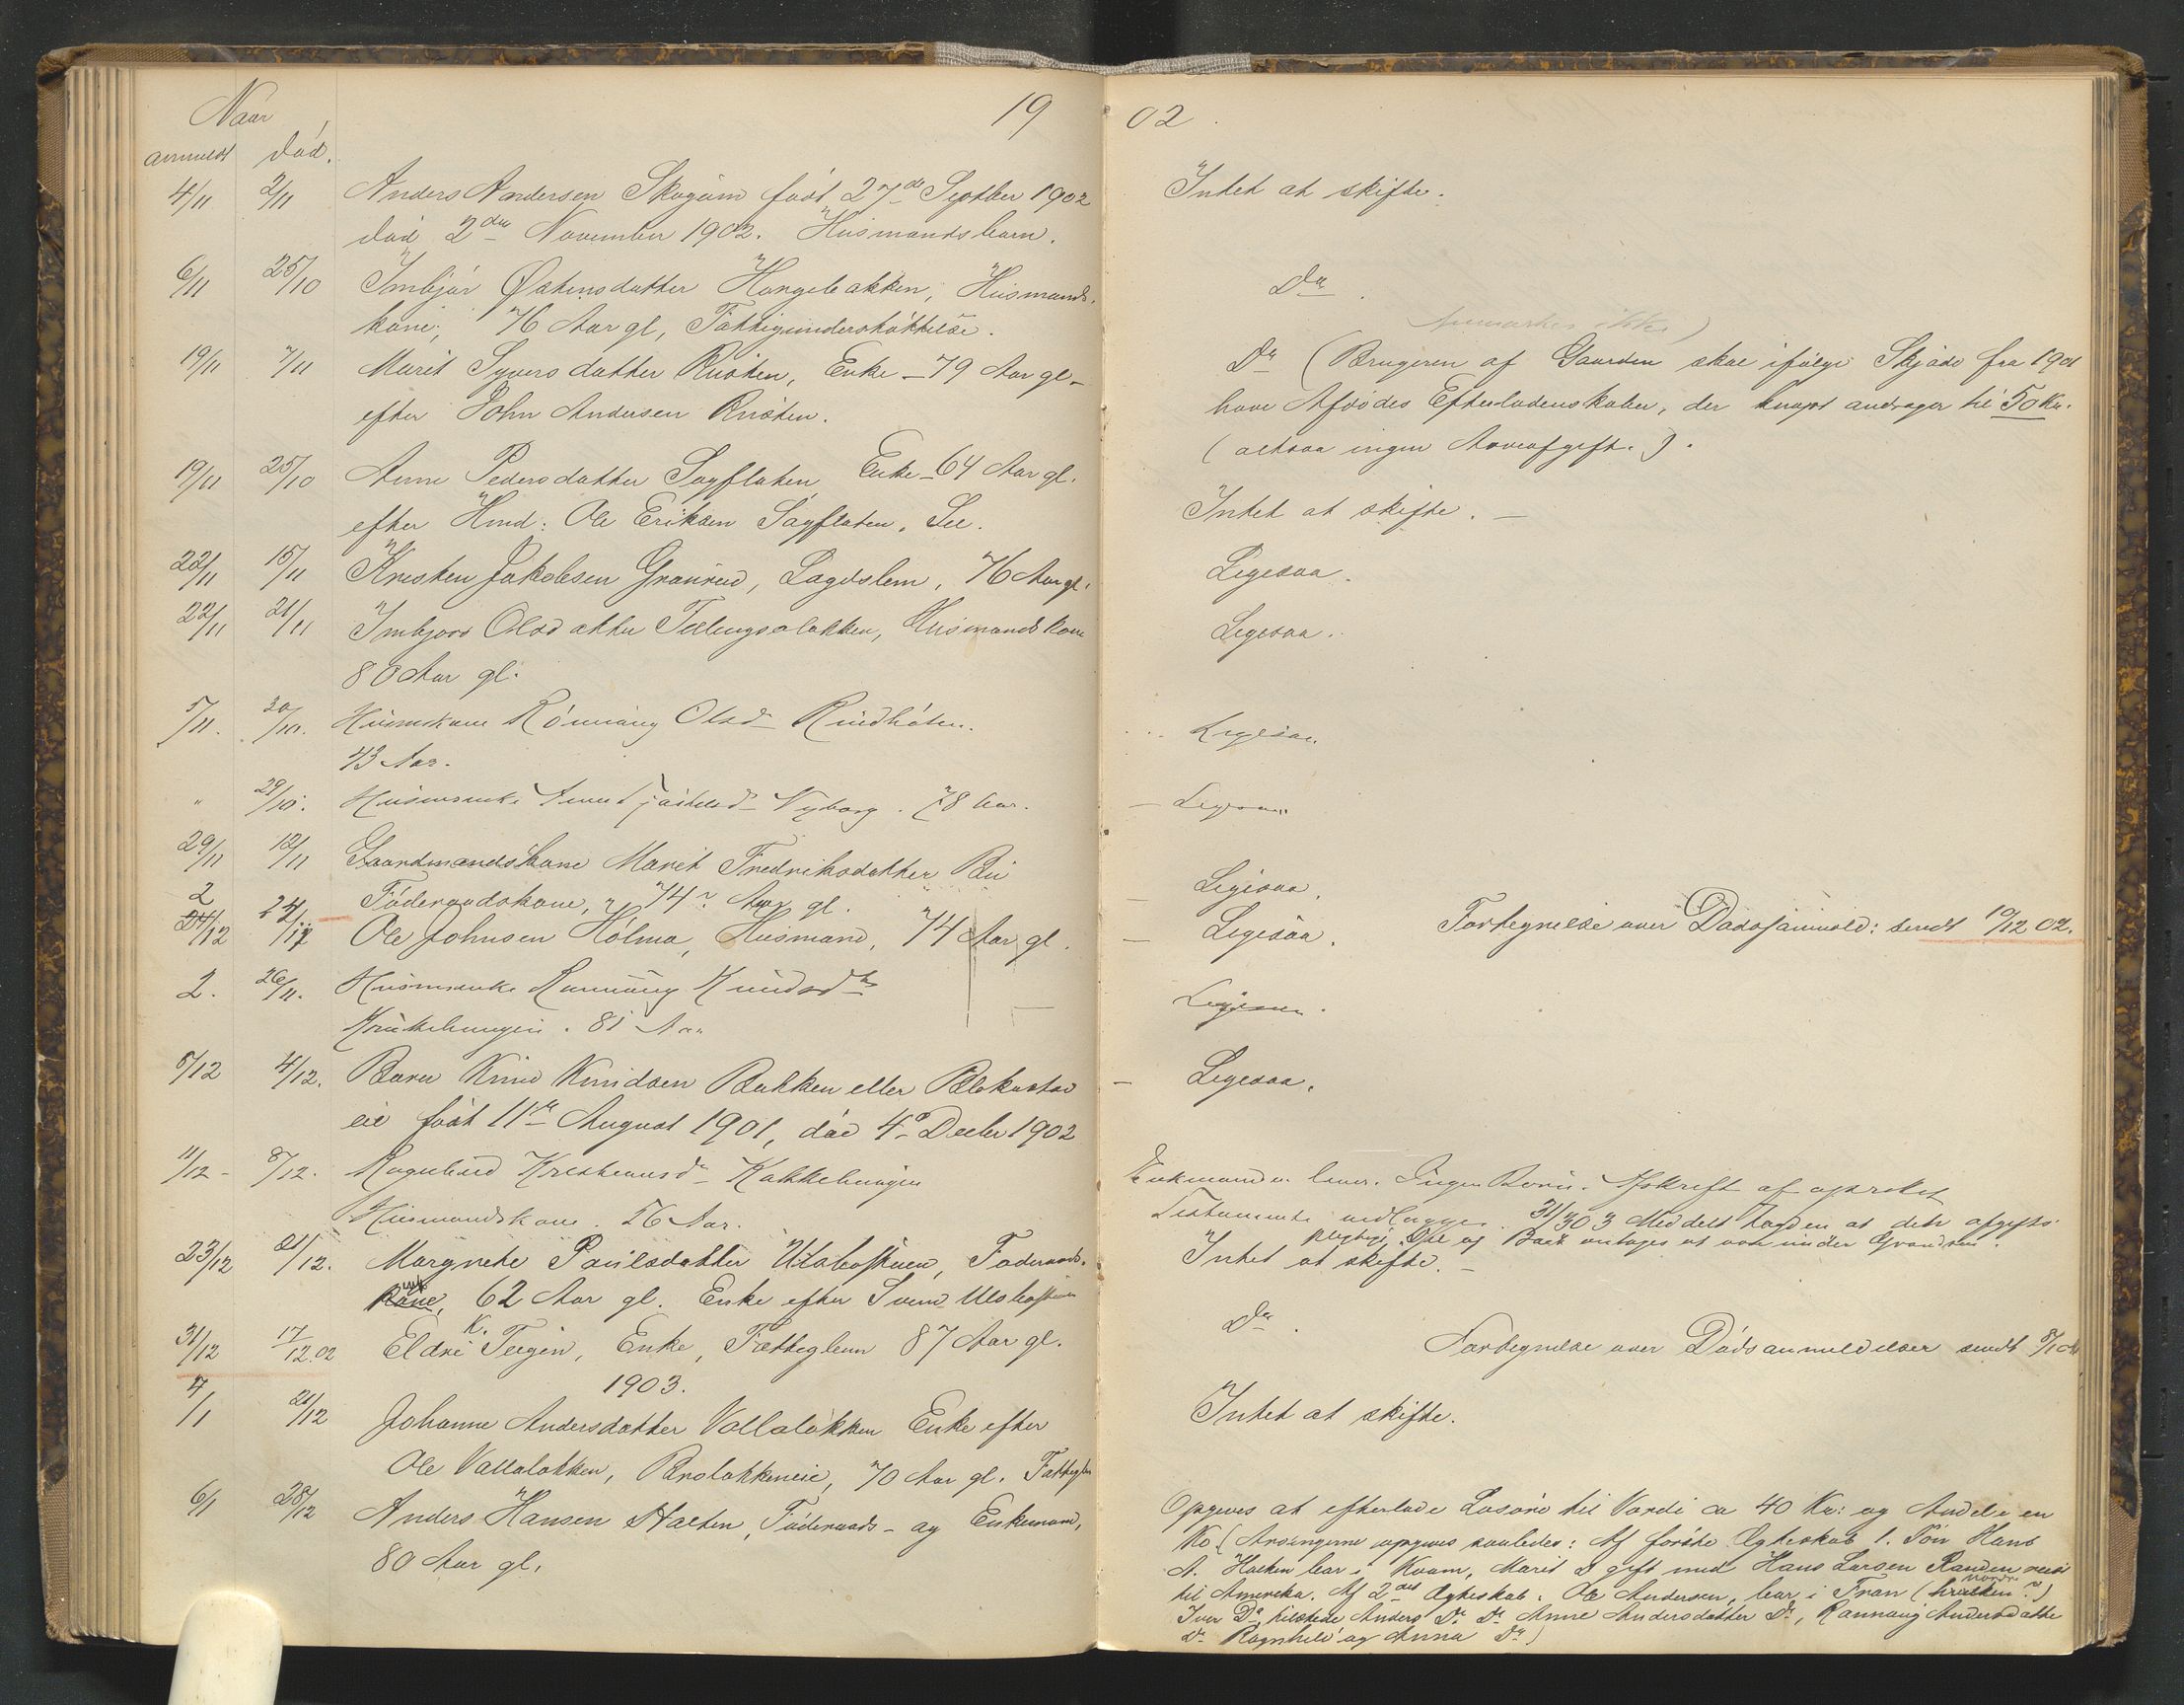 19 02.
Naar
anmeldt død.
4/11 2/11 Anders Andersen Skogum født 27de Septber 1902 Intet at skifte.
død 2den November 1902. Husmandsbarn.
6/11 25/10 Imbjør Østensdatter Hangebakken, Husmands- Do.
kone, 76 Aar gl, Fattigunderstøttelse.
19/11 7/11 Marit Syversdatter Rusten, Enke - 79 Aar gl- Do (Brugeren af Gaarden skal ifølge Skjøde fra 1901
efter John Andersen Rusten. have Afdødes Efterladenskaber, der knapt andrager til 50 Kr.
(altsaa ingen Arveafgift.).
19/11 25/10 Anne Pedersdatter Sagflaten Enke - 64 Aar gl. Intet at skifte.
efter Hmd: Ole Eriksen Sagflaten, Sel.
22/11 15/11 Kresten Jakobsen Granrud, Lagdslem, 76 Aar gl. Ligesaa.
22/11 21/11 Imbjørr Olsdatter Husmandskone Ligesaa.
80 Aar gl.
5/11. 30/10. Husmskone Rønnaug Olsd Rindhølen. Ligesaa.
43 Aar.
" 29/10. Husmsenke Nyborg. 78 Aar. Ligesaa
29/11 12/11 Gaardmandskone Marit Fredriksdatter Bu Ligesaa.
Føderaadskone, 74 Aar gl.
2/12 24/11 Ole Johnsen Holmo, Husmand, 74 Aar gl. Ligesaa. Fortegnelse over Dødsfaimeld: sendt 10/12 02.
2. 26/11. Husmsenke Rønnaug Knudsdtr Ligesaa.
81 Aar
5/12 4/12. Barn Knud Knudsen Bakken eller Ligesaa.
eie født 11te August 1901, død 4de Decbr 1902
11/12 - 8/12. Ragnhild Kristiansdr Enkemanden lever. Ingen Børn. Afskrift af oprettet
Husmandskone. 56 Aar. Testamente vedlægges. 31/3 03 Meddelt Fogden at dette afgifts-
pligtigt.
23/12 21/12. Margrete Paulsdatter Føderaads- Intet at skifte.
enke, 62 Aar gl. Enke efter Svend
31/12 17/12.02 Eldri K. Teigen, Enke, Fattiglem 87 Aar gl. Do. Fortegnelse over Dødsanmeldelser sendt
1903.
7/1 21/12 Johanne Andersdatter Valleløkken Enke efter Intet at skifte.
Ole Valleløkken, 70 Aar gl. Fattiglem
6/1 28/12 Anders Hansen Føderaads- og Enkemand, Opgives at efterlade Løsøre til Værdi ca 40 Kr: og Andel i en
80 Aar gl. Ko. (Arvingerne opgives saaledes: Af første Ægteskab 1. Søn Hans
A. bor i Kvam, Marit D gift med Hans Larsen Randen reist
til Amerika. Af 2det Ægteskab: Ole Andersen, bor i Fron
Iver Do, tilstede Anders Do Do Anne Andersdatter Do, Rønnaug Andersdatter
Do Ragnhild og Anna Do)